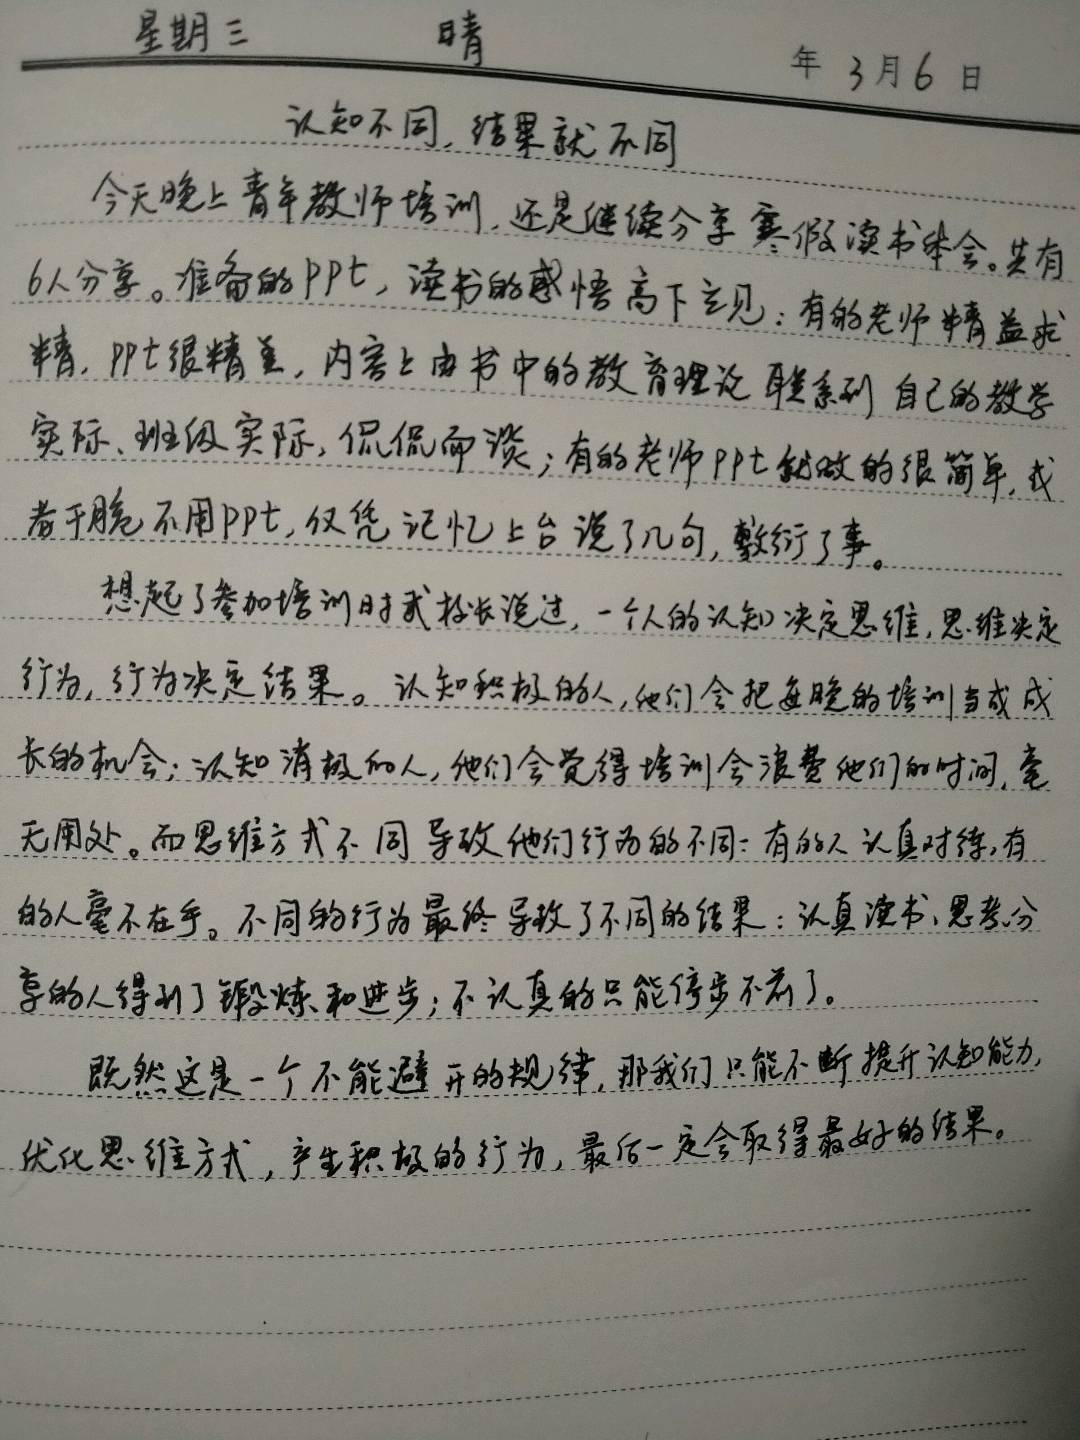 星期三 晴 年 3月6日
认知不同,结果就不同
今天晚上青年教师培训,还是继续分享寒假读书体会。共有
6人分享。准备的PPt,读书的感悟高下立见:有的老师精益求
精,PPt很精美,内容上由书中的教育理论联系到自己的教学
实际、班级实际,侃侃而谈;有的老师PPt就做的很简单,或
者干脆不用PPt,仅凭记忆上台说了几句,敷衍了事。
想起了参加培训时武校长说过,一个人的认知决定思维,思维决定
行为,行为决定结果。认知积极的人,他们会把每晚的培训当成成
长的机会;认知消极的人,他们会觉得培训会浪费他们的时间,毫
无用处。而思维方式不同导致他们行为的不同:有的人认真对待,有
的人毫不在乎。不同的行为最终导致了不同的结果:认真读书、思考、分
享的人得到了锻炼和进步;不认真的只能停步不前了。
既然这是一个不能避开的规律,那我们只能不断提升认知能力,
优化思维方式,产生积极的行为,最后一定会取得最好的结果。